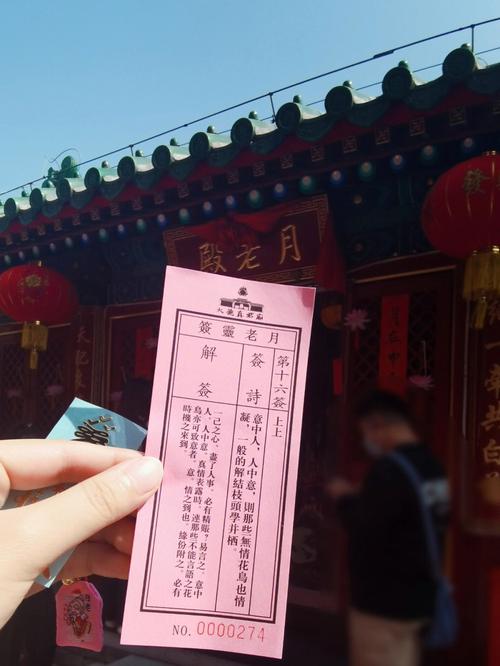 月老殿
火德真君廟
月老靈簽
第十六簽 上上
簽詩
意中人，人中意，則那些無情花鳥也情
凝，一般的解結枝頭學并栖。
解簽
一己之心，盡了人事。必有精賬？易言之。意中
人，人中意。真情表露時。連那些不能言語之花
鳥亦可致意者，意。情之到也。緣份附之。必有
時機之來到。
NO. 0000274